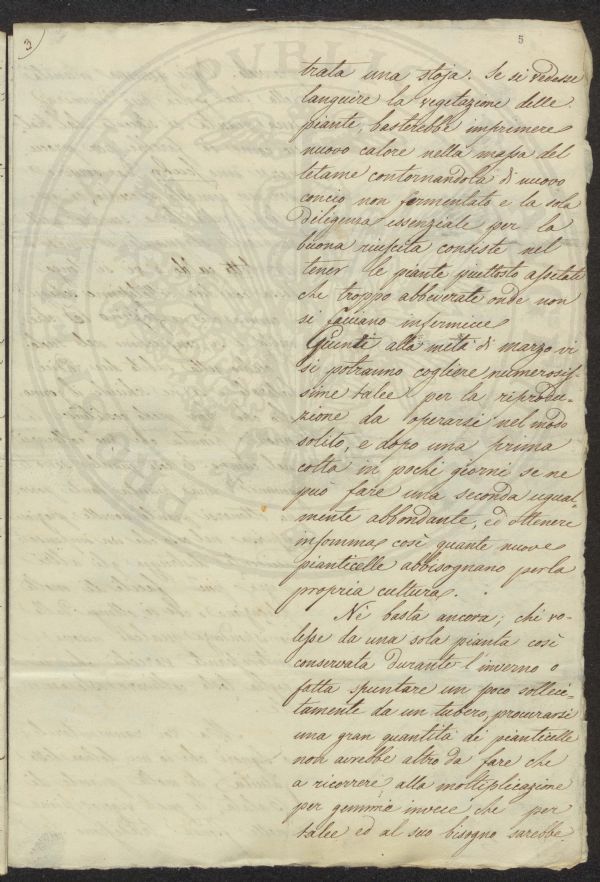 3)
5
trata una stoja. Se si vedesse
languire la vegetazione delle
piante, basterebbe imprimere
nuovo calore nella massa del
letame contornandola di nuovo
concio non fermentato e la sola
diligenza essenziale per la
buona riuscita consiste nel
tener le piante piuttosto assetate
che troppo abbeverate onde non
si facciano infermicce
Giunti alla metà di marzo vi
si potranno cogliere numerosis-
sime talee per la riprodu-
zione da operarsi nel modo
solito, e dopo una prima
colta in pochi giorni se ne
può fare una seconda ugual-
mente abbondante, ed ottenere
insomma così quante nuove
pianticelle abbisognano per la
propria cultura.
Nè basta ancora; chi vo-
lesse da una sola pianta così
conservata durante l'inverno o
fatta spuntare un poco solleci-
tamente da un tubero, procurarsi
una gran quantità di pianticelle
non avrebbe altro da fare che
a ricorrere alla moltiplicazione
per gemme invece che per
talee ed al suo bisogno sarebbe